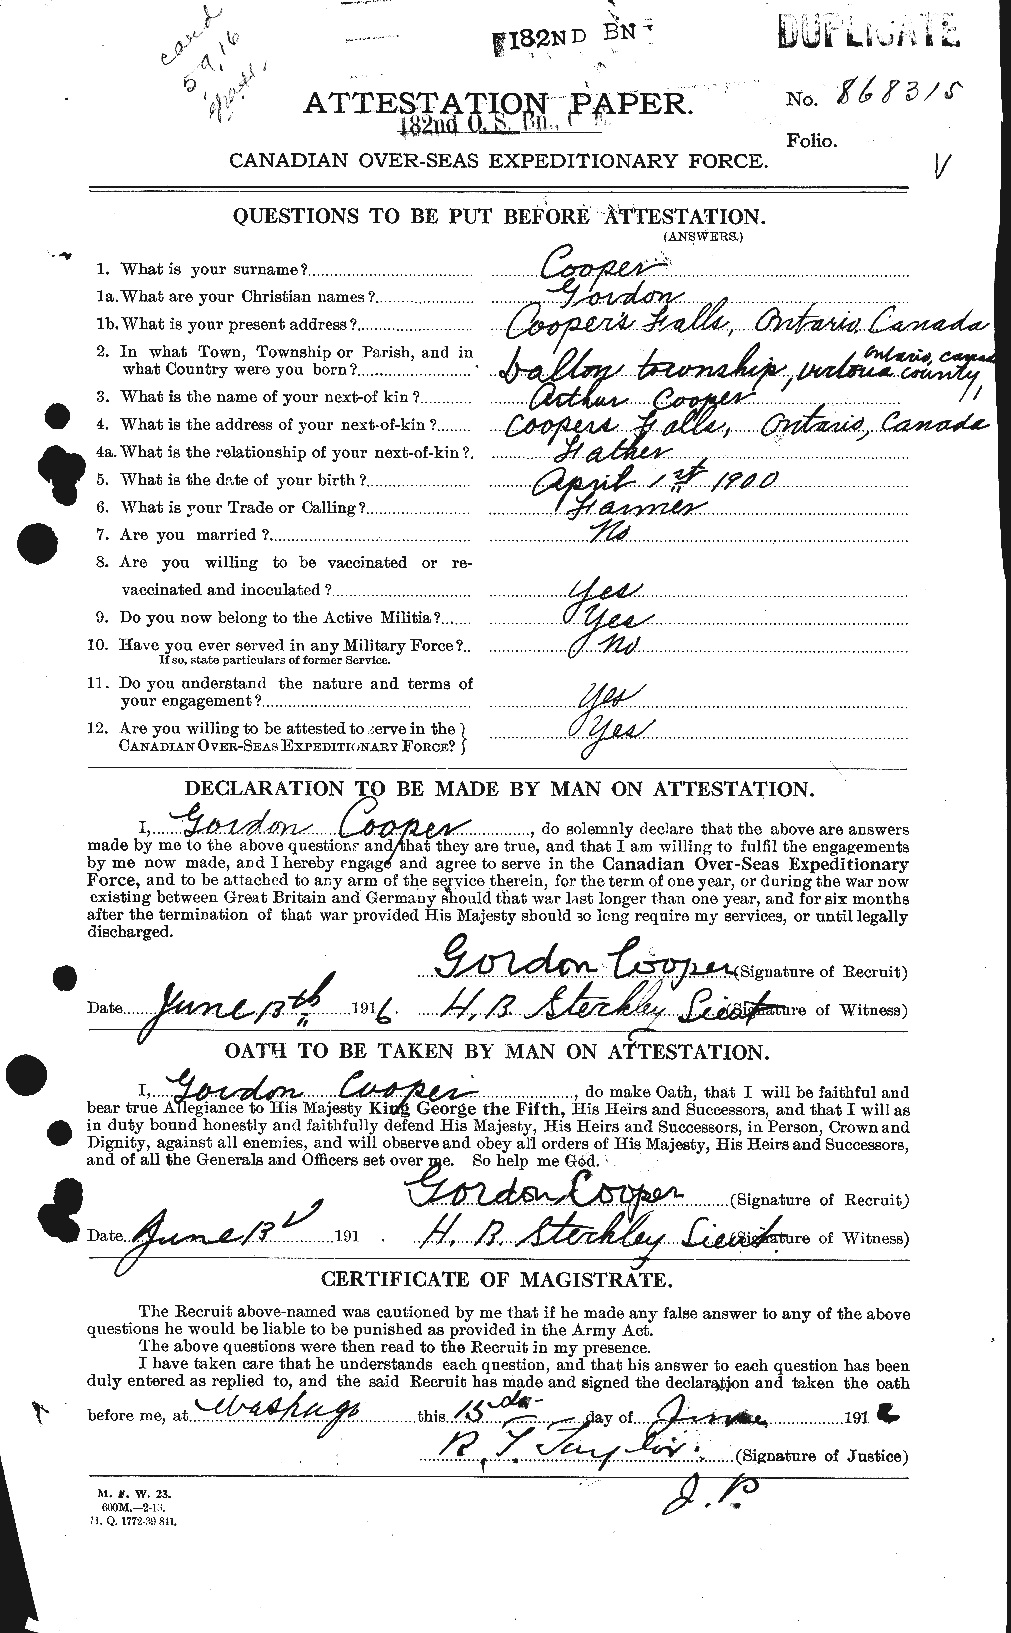 card
5.9.16
182ND BN
DUPLICATE
ATTESTATION PAPER.
No. 868315
182nd O. S. Bn., C. E. F.
Folio.
CANADIAN OVER-SEAS EXPEDITIONARY FORCE.
V
QUESTIONS TO BE PUT BEFORE ATTESTATION.
(ANSWERS.)
1. What is your surname? Cooper
1a. What are your Christian names? Gordon
1b. What is your present address? Cooper's Falls, Ontario, Canada
2. In what Town, Township or Parish, and in Ontario, Canada
what Country were you born? Dalton township, Victoria County,
3. What is the name of your next-of kin? Arthur Cooper
4. What is the address of your next-of-kin? Coopers Falls, Ontario, Canada
4a. What is the relationship of your next-of-kin? Father
5. What is the date of your birth? April 1st 1900
6. What is your Trade or Calling? Farmer
7. Are you married? No
8. Are you willing to be vaccinated or re-
vaccinated and inoculated? Yes
9. Do you now belong to the Active Militia? Yes
10. Have you ever served in any Military Force? No
If so, state particulars of former Service.
11. Do you understand the nature and terms of
your engagement? Yes
12. Are you willing to be attested to serve in the
CANADIAN OVER-SEAS EXPEDITIONARY FORCE? Yes
DECLARATION TO BE MADE BY MAN ON ATTESTATION.
I, Gordon Cooper, do solemnly declare that the above are answers
made by me to the above questions and that they are true, and that I am willing to fulfil the engagements
by me now made, and I hereby engage and agree to serve in the Canadian Over-Seas Expeditionary
Force, and to be attached to any arm of the service therein, for the term of one year, or during the war now
existing between Great Britain and Germany should that war last longer than one year, and for six months
after the termination of that war provided His Majesty should so long require my services, or until legally
discharged.
Gordon Cooper (Signature of Recruit)
Date June 13th 1916. H. B. Sterkley Lieut (Signature of Witness)
OATH TO BE TAKEN BY MAN ON ATTESTATION.
I, Gordon Cooper, do make Oath, that I will be faithful and
bear true Allegiance to His Majesty King George the Fifth, His Heirs and Successors, and that I will as
in duty bound honestly and faithfully defend His Majesty, His Heirs and Successors, in Person, Crown and
Dignity, against all enemies, and will observe and obey all orders of His Majesty, His Heirs and Successors,
and of all the Generals and Officers set over me. So help me God.
Gordon Cooper (Signature of Recruit)
Date June 13 191 . H. B. Sterkley Lieut. (Signature of Witness)
CERTIFICATE OF MAGISTRATE.
The Recruit above-named was cautioned by me that if he made any false answer to any of the above
questions he would be liable to be punished as provided in the Army Act.
The above questions were then read to the Recruit in my presence.
I have taken care that he understands each question, and that his answer to each question has been
duly entered as replied to, and the said Recruit has made and signed the declaration and taken the oath
before me, at Washago this 13 day of June 1916
R. T. Taylor (Signature of Justice)
J. P.
M. F. W. 23.
600M.—2-16.
H. Q. 1772-39 841.